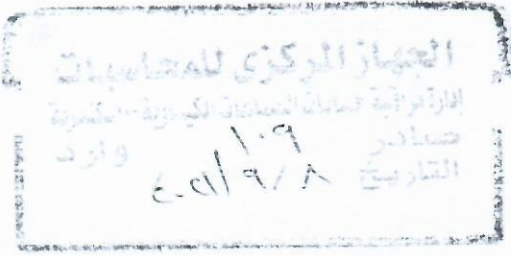 الجهاز المركزى للمحاسبات
إدارة مراقبة حسابات الصناعات الكيماوية
صادر ١٠٩ وارد
التاريخ ٨ / ٩ / ٢٠٢١